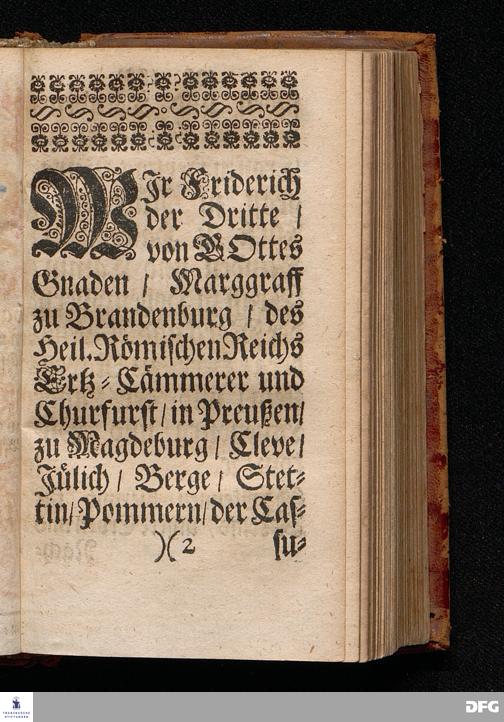 WJr Friderich
der Dritte /
von GOttes
Gnaden / Marggraff
zu Brandenburg / des
Heil. Römischen Reichs
Ertz-Cämmerer und
Churfürst / in Preußen /
zu Magdeburg / Cleve /
Jülich / Berge / Stet-
tin / Pommern / der Cas-
)( 2 su-
FRANCKESCHE
STIFTUNGEN
DFG